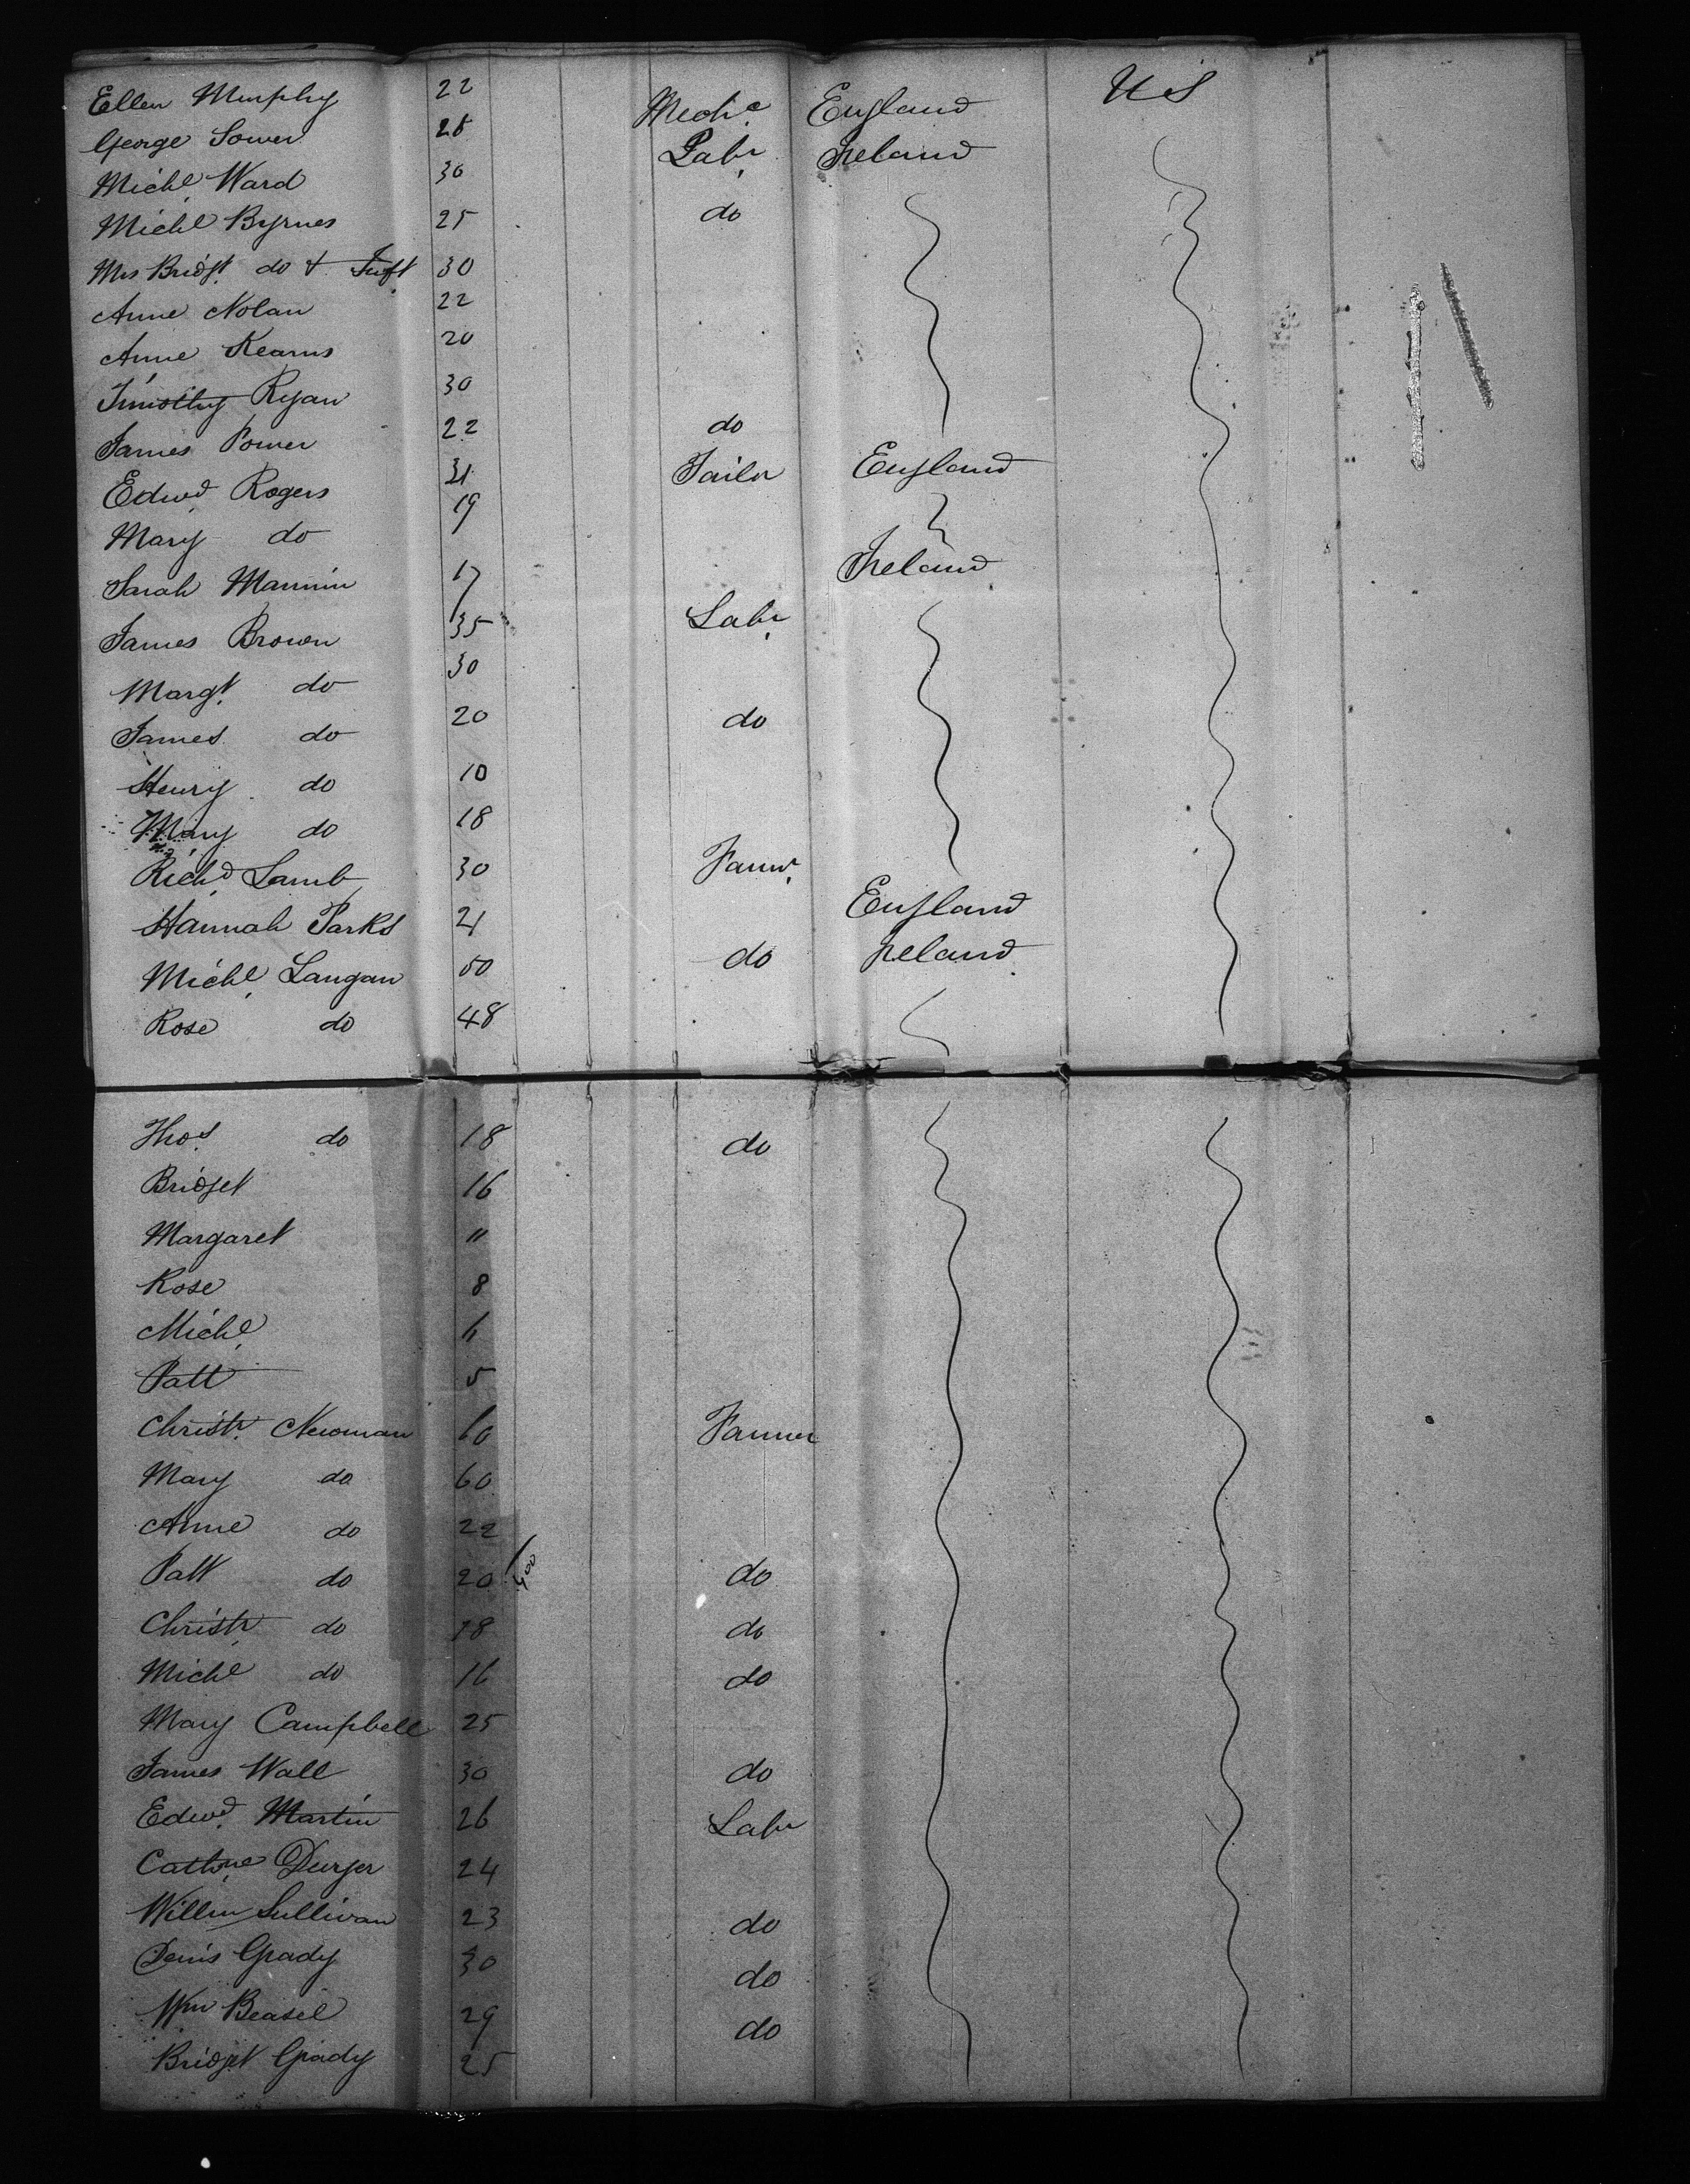 Ellen Murphy 22 U S
George Sower 28 Mech.c England
Michl. Ward 30 Labr. Ireland
Michl Byrnes 25 do
Mrs Bridgt. do & Inft. 30
Anne Nolan 22
Anne Kearns 20
Timothy Ryan 30
James Power 22 do
Edwd. Rogers 31 Tailor England
Mary do 19
Sarah Mannin 17 Ireland
James Brown 35 Labr.
Margt. do 30
James do 20 do
Henry do 10
Mary do 18
Richd. Lamb 30 Farmr.
Hannah Parks 21 England
Michl. Langan 50 do Ireland
Rose do 48
Thos. do 18 do
Bridget 16
Margaret 11
Rose 8
Michl. 6
Patt 5
Christr. Newman 60 Farmer
Mary do 60
Anne do 22
Patt do 20 do
Christr. do 18 do
Michl do 16 do
Mary Campbell 25
James Wall 30 do
Edwd. Martin 26 Labr
Cathne. 24
Willm Sullivan 23 do
Denis Grady 30 do
Wm Beasel 29 do
Bridget Grady 25